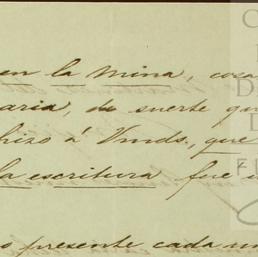 en la mina, cosa
aria, de suerte qu
hizo á Vmds., que
la escritura fue
presente cada un